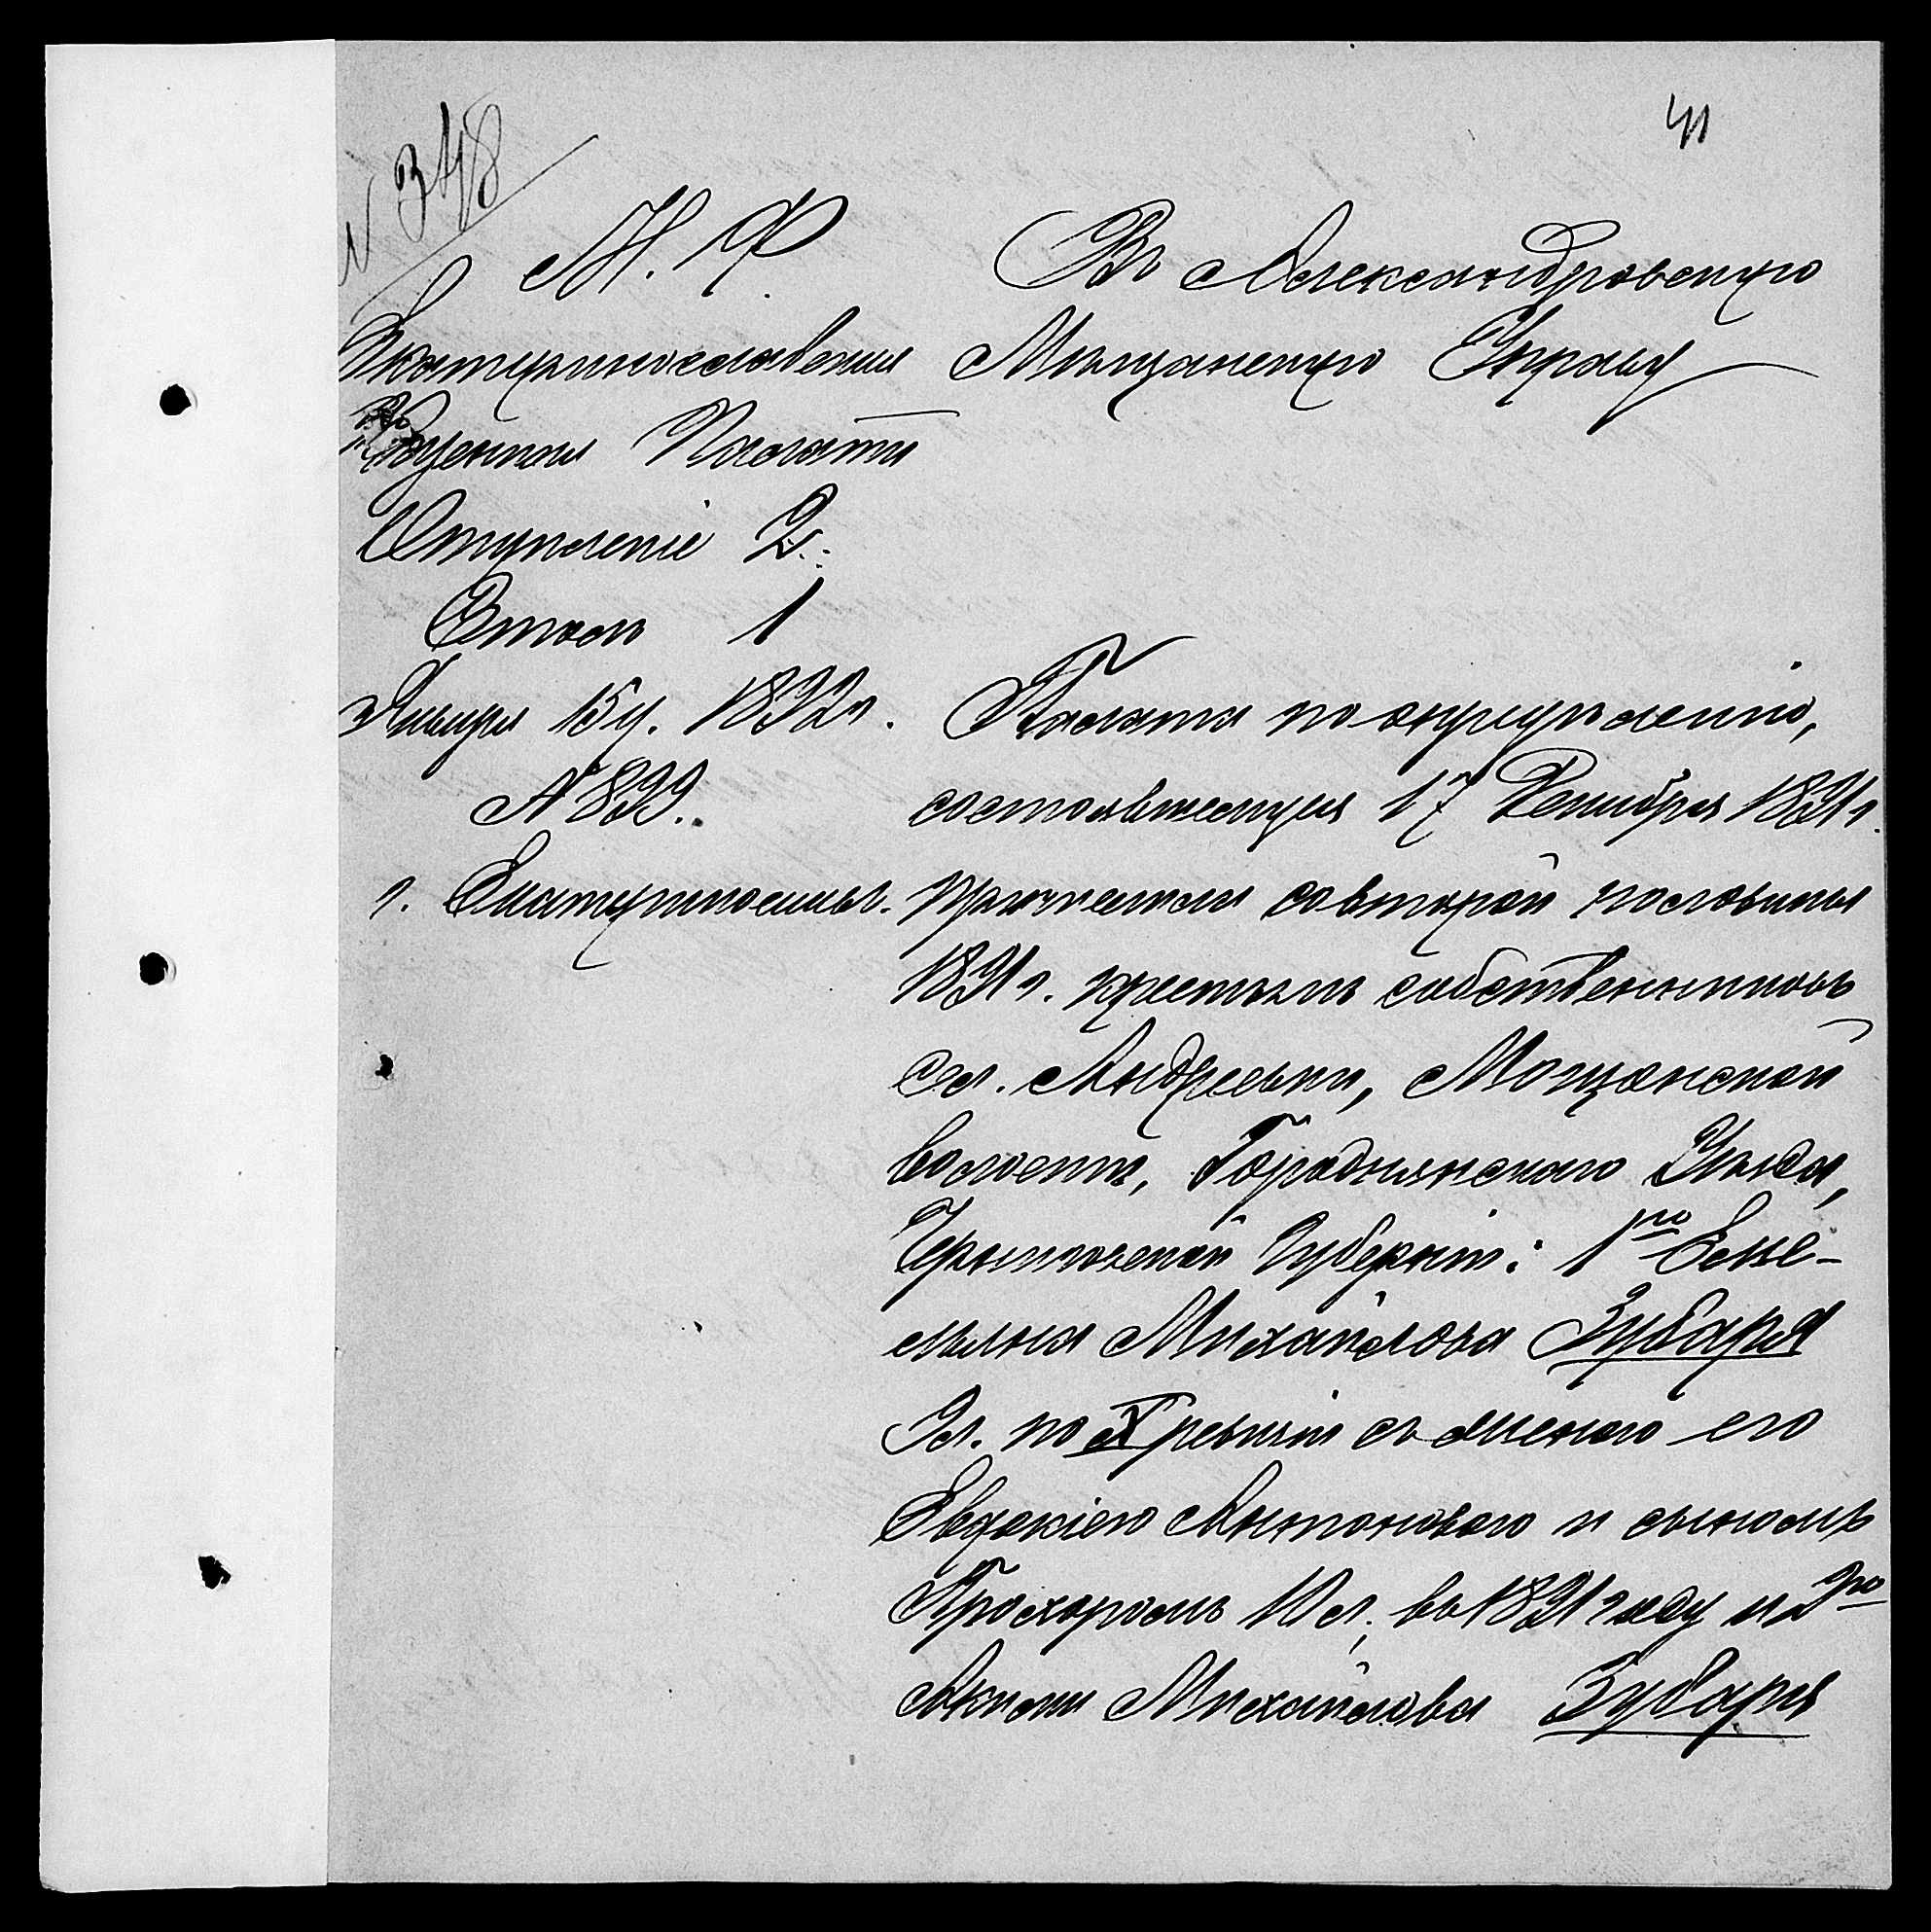 41
N 348
М. Ф.
Екатеринославская
Казенная Палата
Отделенiе 2.
Столъ 1
Января 15 д. 1892 г.
№ 899.
г. Екатеринославъ.
Въ Александровскую
Мѣщанскую Управу
Палата по определенiю,
состоявшемуся 17 Декабря 1891 г.
причислила со второй половины
1891 г. крестьянъ собственниковъ
сел. Андреевки, Мощонской
волости, Городнянскаго Уѣзда,
Черниговской Губернiи: 1го Еме-
льяна Михайлова Зубаря
9 л. по X ревизiи съ женою его
Евдокiею Антоновою и сыномъ
Прохоромъ 10 л., въ 1891 году и 2го
Акима Михайлова Зубаря